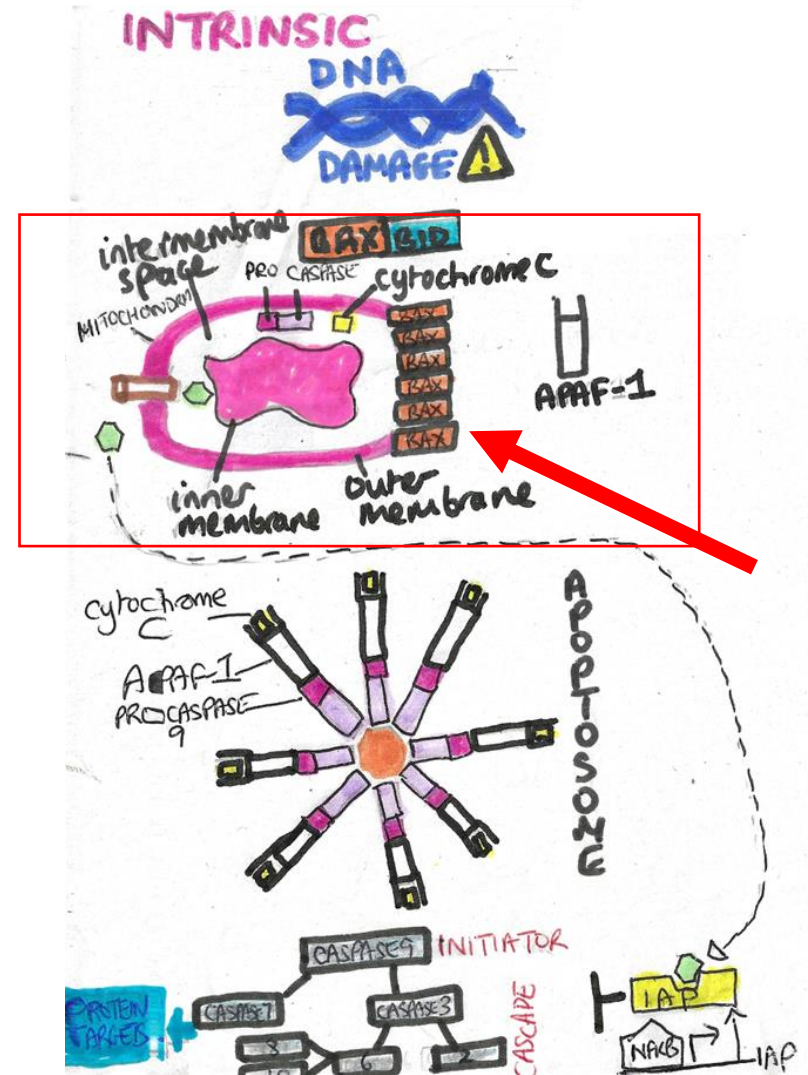 INTRINSIC
DNA
DAMAGE
!
intermembrane
space
BAX BID
PRO CASPASE
cytochrome C
MITOCHONDRIA
BAX
BAX
BAX
BAX
BAX
BAX
APAF-1
inner
membrane
outer
membrane
cytochome
C
APAF-1
PROCASPASE
9
APOPTOSOME
CASPASE9 INITIATOR
PROTEIN
TARGETS
CASPASE7
CASPASE3
CASCADE
IAP
8
6
2
10
NFKB
IAP